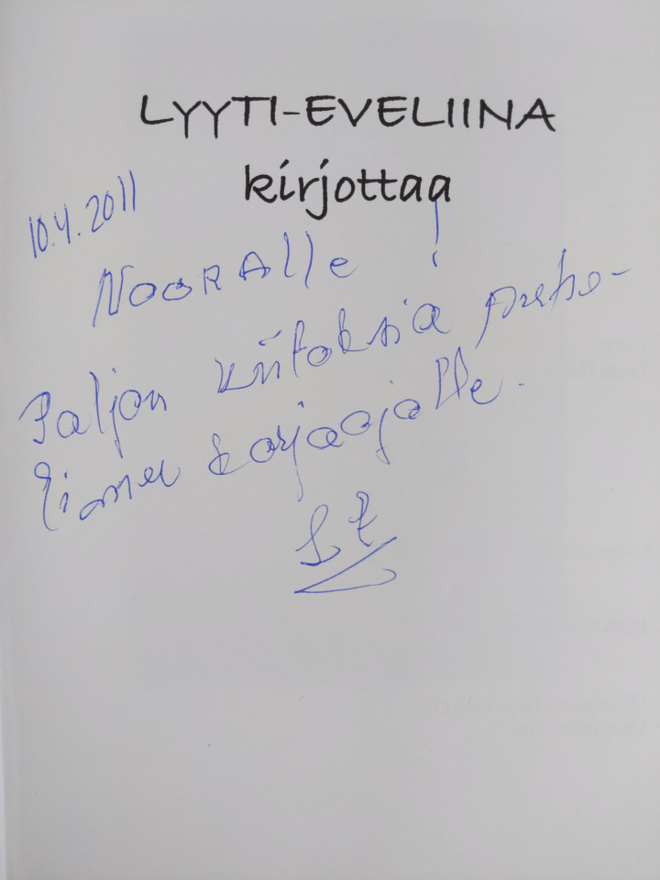 LYYTI-EVELIINA
kirjottaa
10.4.2011
NOORAlle !
Paljon kiitoksia puhe-
limen korjaajalle.
LE